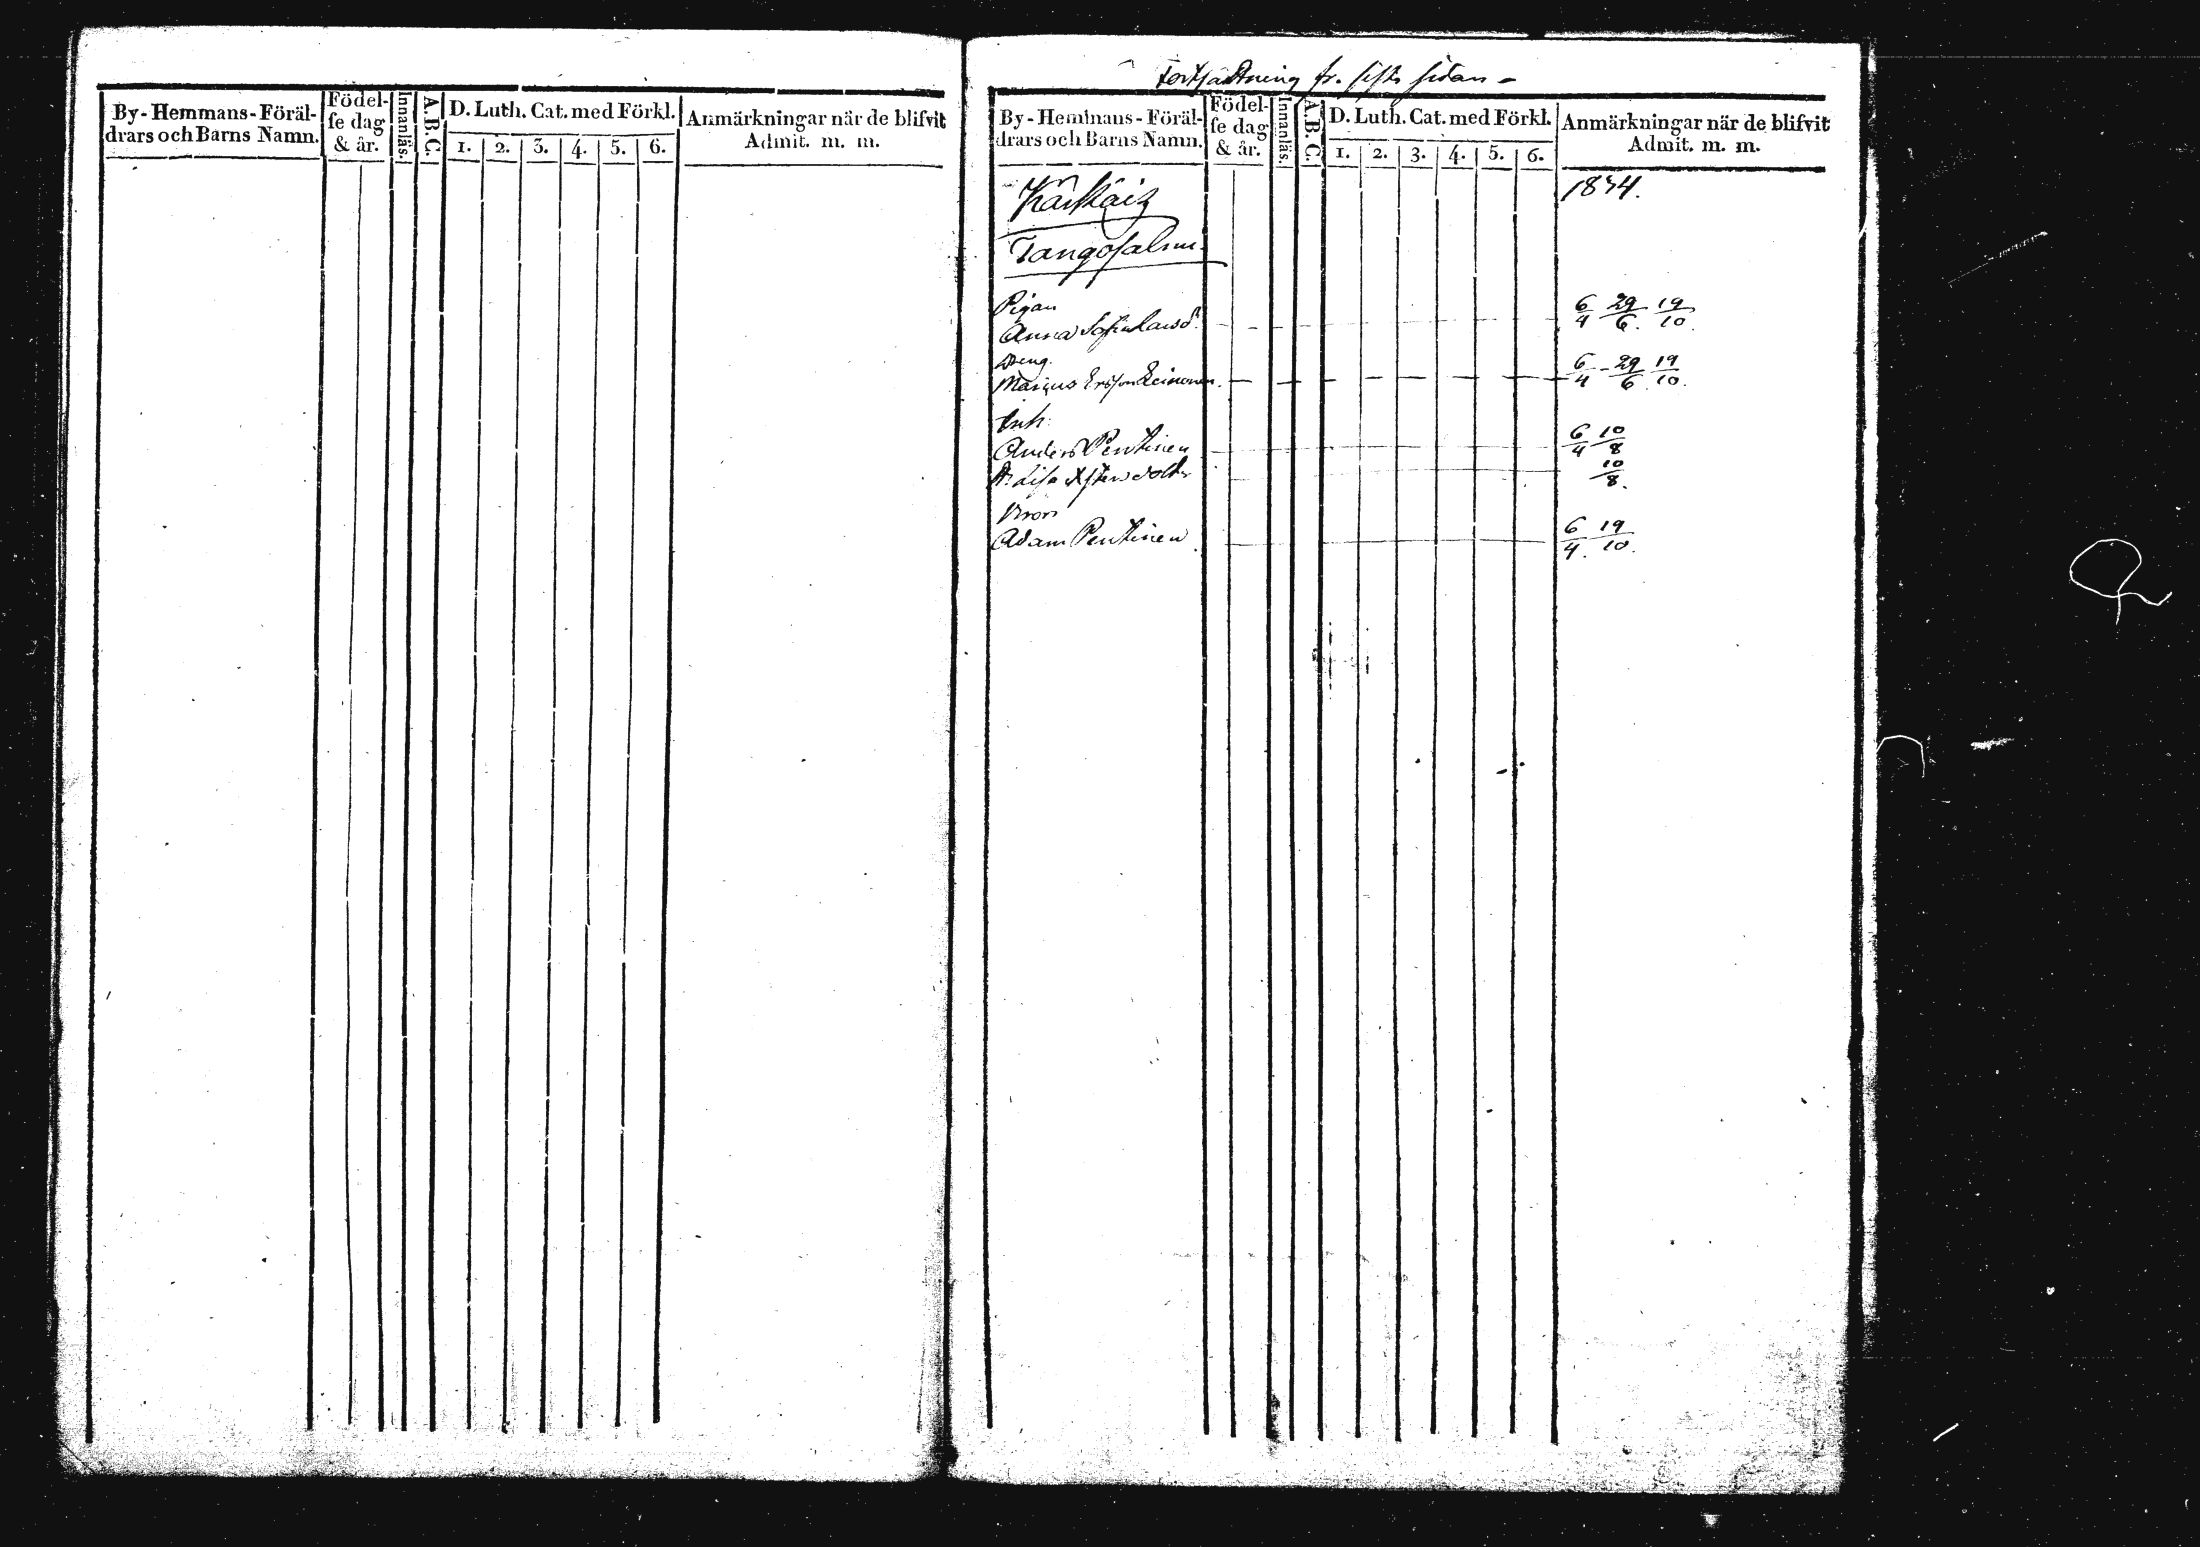 By- Hemmans- Föräl-
drars och Barns Namn.
Födel-
se dag
& år.
Innanläs.
A.B.C.
D. Luth. Cat. med Förkl.
1. 2. 3. 4. 5. 6.
Anmärkningar när de blifvit
Admit. m. m.
fr. sista sidan -
By- Hemmans- Föräl-
drars och Barns Namn.
Födel-
se dag
& år.
Innanläs.
A.B.C.
D. Luth. Cat. med Förkl.
1. 2. 3. 4. 5. 6.
Anmärkningar när de blifvit
Admit. m. m.
1834.
Tangosalmi
Pigan
Anna 6/4 29/6. 19/10.
Dreng.
Erson Reinonen. 6/4 - 29/6. 19/10.
Inh:
Anders Pentinen 6/4 10/8
Lisa 10/8.
Adam Pentinen 6/4. 19/10.